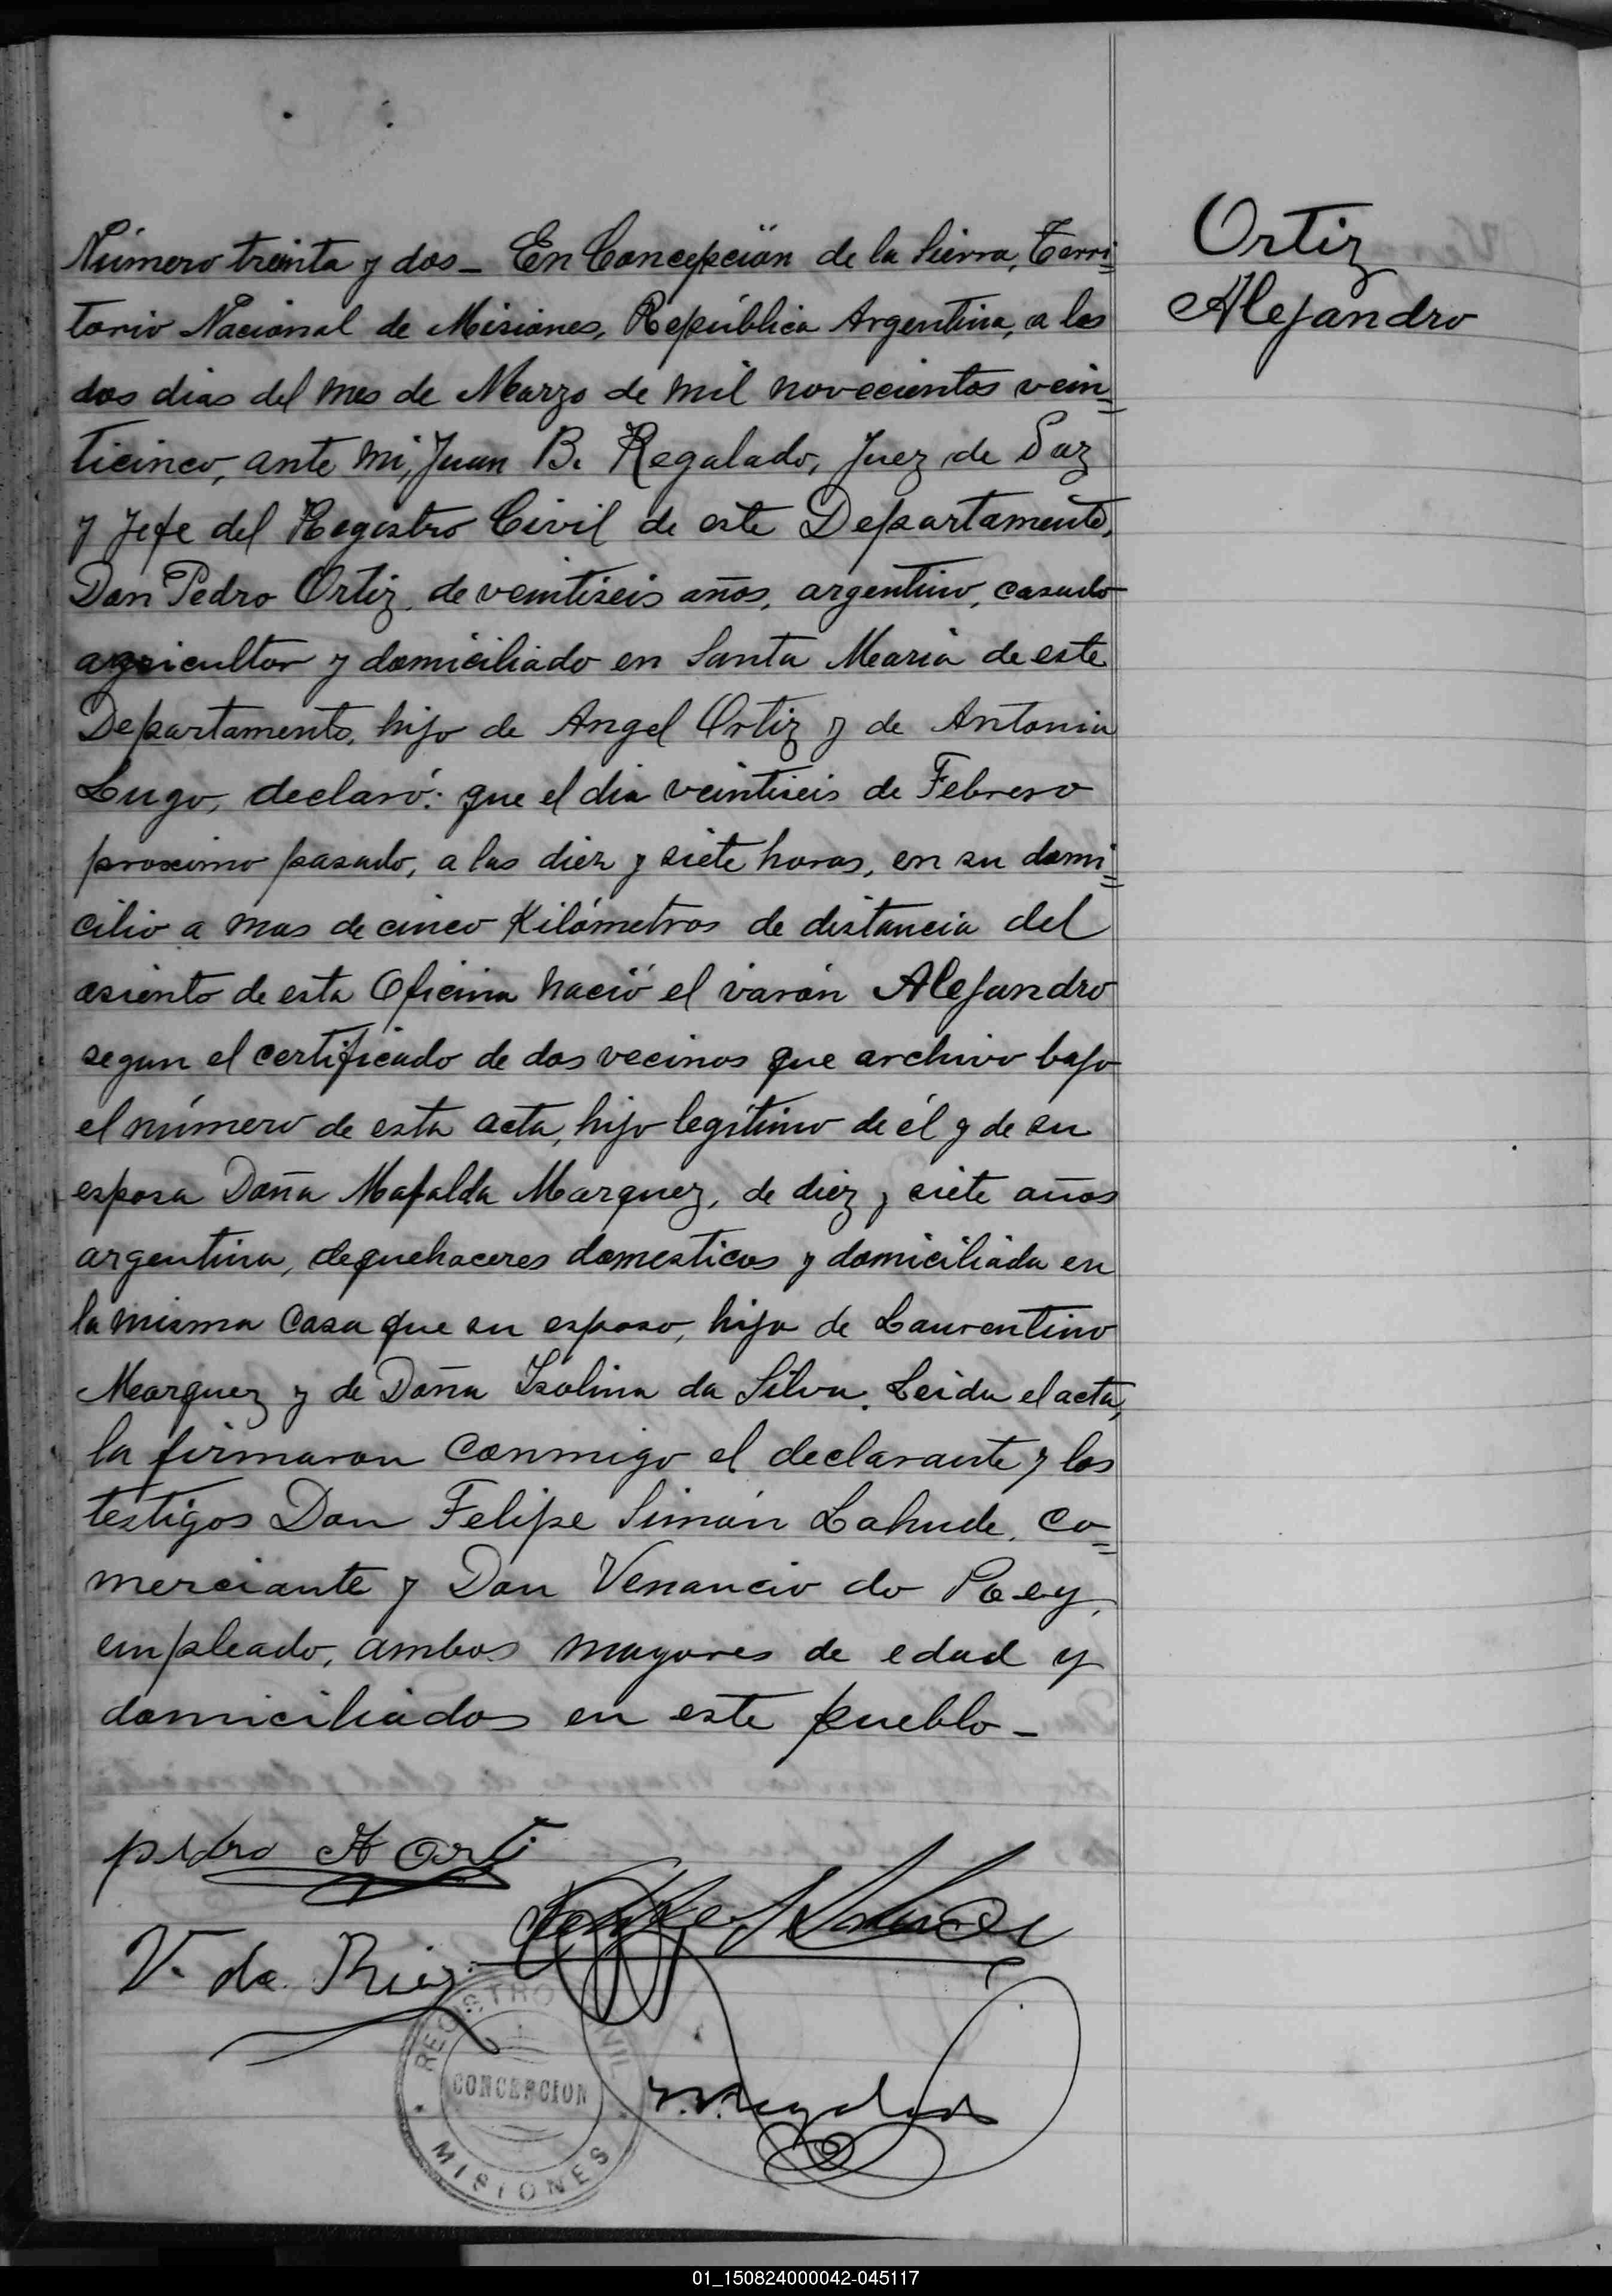 Ortiz
Alejandro
Número treinta y dos - En Concepción de la Sierra, Terri=
torio Nacional de Misiones, República Argentina, a los
dos dias del mes de Marzo de mil novecientos vein=
ticinco, ante mi, Juan B. Regalado, Juez de Paz
y Jefe del Registro Civil de este Departamento,
Don Pedro Ortiz, de veintiseis años, argentino, casado
agricultor y domiciliado en Santa Maria de este
Departamento, hijo de Angel Ortiz y de Antonia
Lugo, declaró: que el dia veintiseis de Febrero
proximo pasado, a las diez y siete horas, en su domi=
cilio a mas de cinco Kilómetros de distancia del
asiento de esta Oficina nació el varón Alejandro
segun el certificado de dos vecinos que archivo bajo
el número de esta acta, hijo legítimo de él y de su
esposa Doña Mafalda Marquez, de diez y siete años
argentina, de quehaceres domesticos y domiciliada en
la misma casa que su esposo, hija de Laurentino
Marquez y de Doña Isolina da Silva. Leida el acta,
la firmaron conmigo el declarante y los
testigos Don Felipe Simón Lahude, co=
merciante y Don Venancio do
empleado, ambos mayores de edad y
domiciliados en este pueblo -
pedro A Orti
V. do
REGISTRO CIVIL
CONCEPCION
MISIONES
01_150824000042-045117